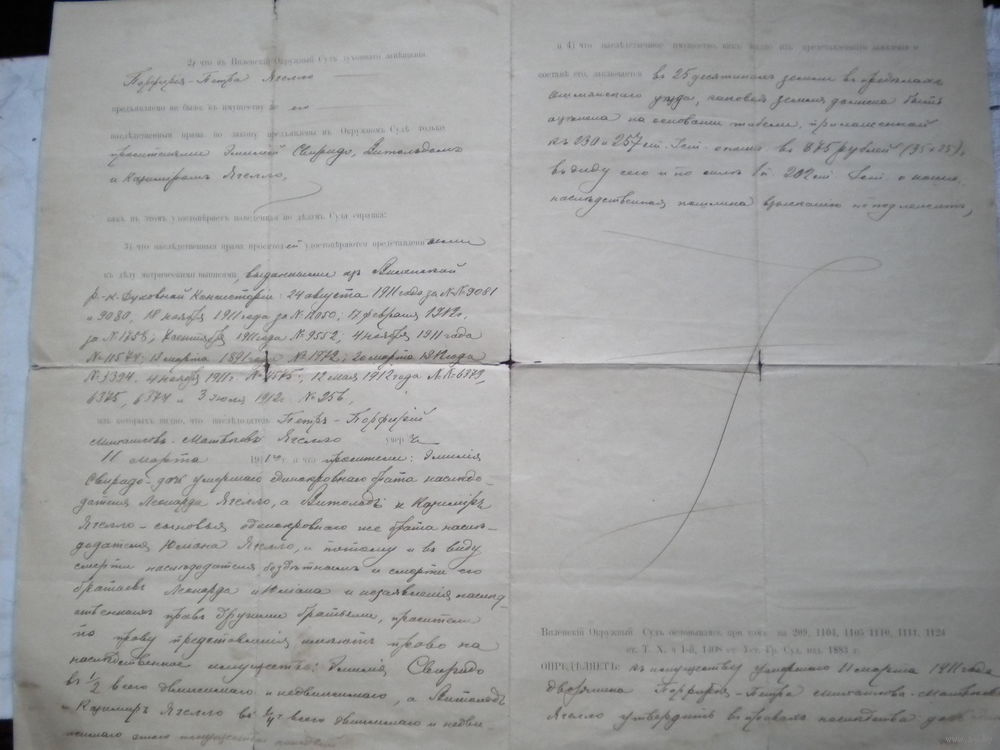 2) что въ Виленскій Окружный Судъ духовнаго завѣщанія
Порфирія-Петра Ягелло
предъявлено не было, къ имуществу же его
наслѣдственныя права по закону предъявлены въ Окружномъ Судѣ только
просителями Эмиліей Свиридо, Витольдомъ
и Казимиромъ Ягелло,
какъ въ этомъ удостовѣряетъ наведенная по дѣламъ Суда справка;
3) что наслѣдственныя права просителей удостовѣряются представленными
къ дѣлу метрическими выписями, выданными изъ Виленской
Р.-К. Духовной Консисторіи: 24 августа 1911 года за №№ 9081
и 9080, 18 ноября 1911 года за № 12050, 17 февраля 1912 г.
за № 1758, сентября 1911 года № 9552, 4 ноября 1911 года
№ 11574; марта 1891 года № 1972; 20 марта года
№ 3394, 4 ноября 1911 г. № 12 мая 1912 года №№ 6373,
6375, 6374 и 3 іюля 1912 г. № 256,
изъ которыхъ видно, что наслѣдователь Петръ-Порфирій
Михайловъ-Матвѣевъ Ягелло умеръ
11 марта 1911 г. и что просители: Эмилія
Свиридо-дочь умершаго единокровнаго брата наслѣдо-
дателя Леонарда Ягелло, а Витольдъ и Казиміръ
Ягелло-сыновья единокровнаго же брата наслѣ-
додателя Юліана Ягелло, и потому и въ виду
смерти наслѣдодателя бездѣтнымъ и смерти его
братьевъ Леонарда и Юліана и незаявленія наслѣд-
ственныхъ правъ другими братьями, просители
по праву представленія имѣютъ право на
наслѣдственное имущество: Эмилія Свиридо
въ 1/2 всего движимаго и недвижимаго, а Витольдъ
Казимиръ Ягелло въ 1/4 всего движимаго и недви-
жимаго этого имущества
и 4) что наслѣдственное имущество, какъ видно изъ представленнаго заявленія о
составѣ его, заключается въ 25 десятинахъ земли въ предѣлахъ
Ошмянскаго уѣзда, каковая земля должна быть
оцѣнена на основаніи табели, приложенной
къ 230 и 257 ст. Уст. о пошл. въ 875 рублей (35×25),
въ виду сего и по силѣ 202 ст. Уст. о пошл.
наслѣдственная пошлина взысканію не подлежитъ,
Виленскій Окружный Судъ основываясь при томъ на 209, 1104, 1105, 1110, 1111, 1124
ст. Т. X, ч. I-й, 1408 ст. Уст. Гр. Суд. изд. 1883 г.
ОПРЕДѢЛЯЕТЪ: къ имуществу умершаго 11 марта 1911 года
дворянина Порфирія-Петра Михайлова-Матвѣева
Ягелло утвердить въ правахъ наслѣдства